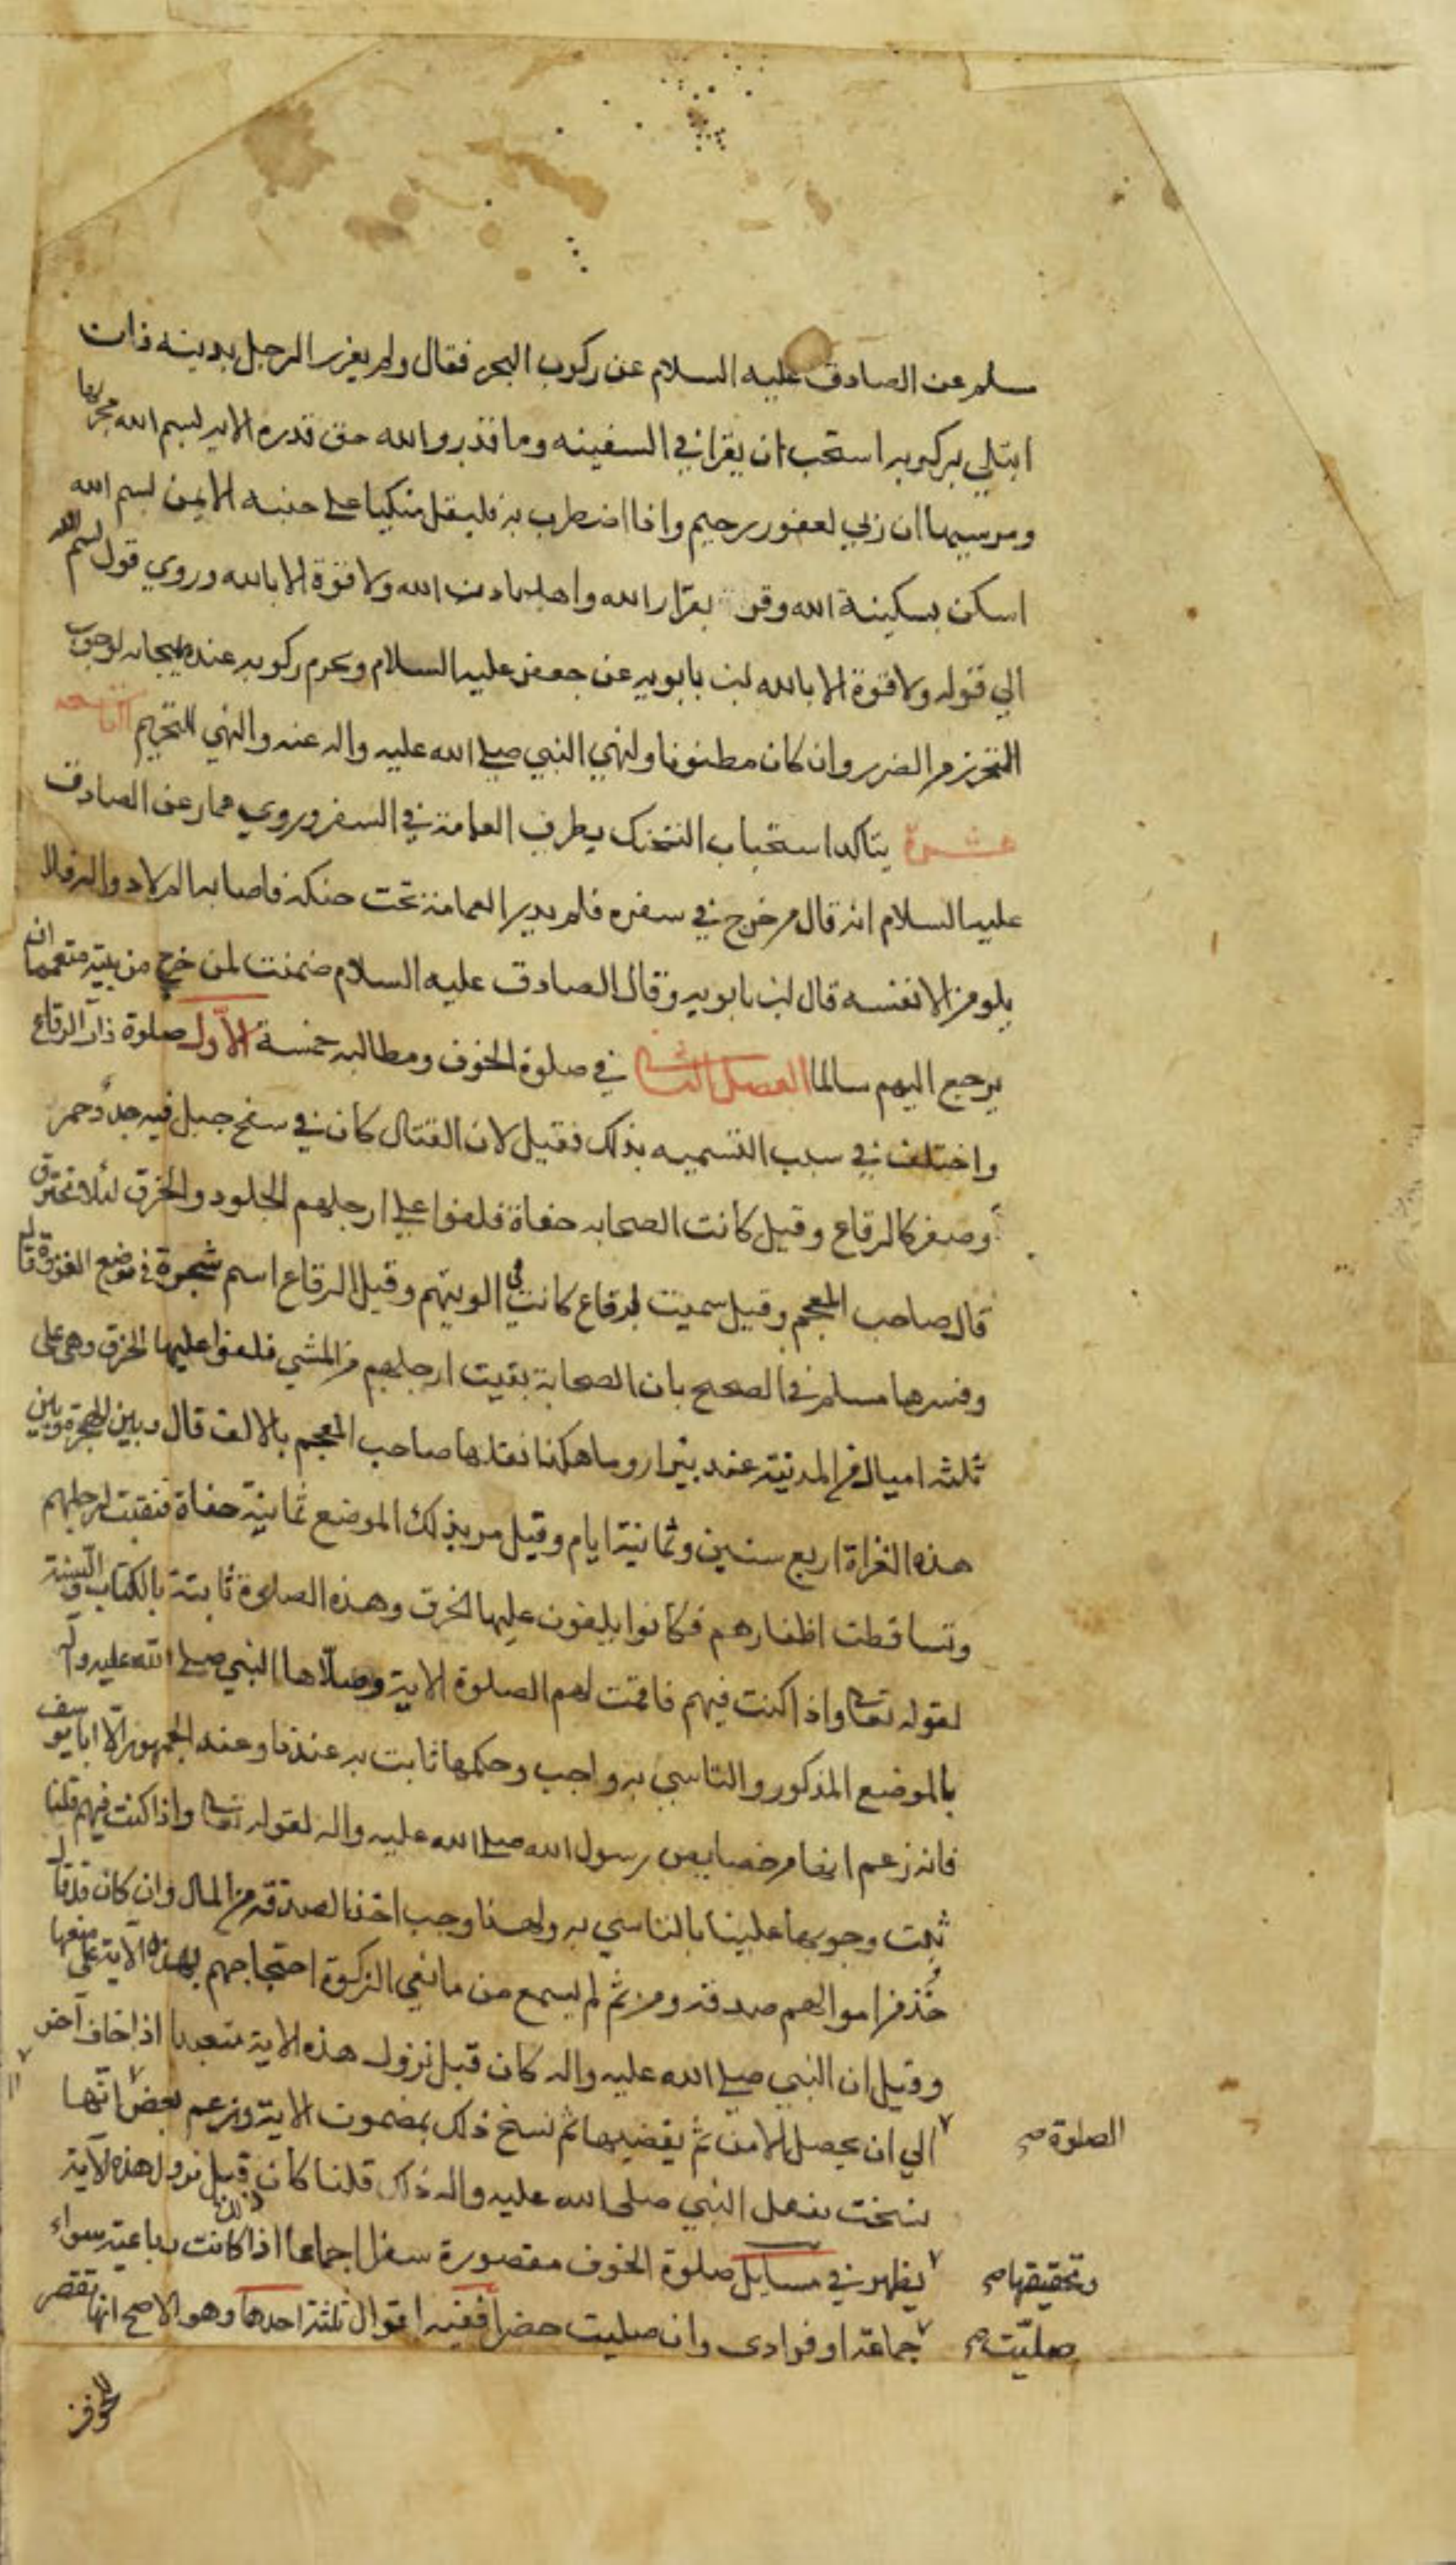 سلم عن الصادق عليه السلام عن ركوب البحر فقال ولم يغرر الرجل بدينه فان
ابتلي بركوبه استحب ان يقرا في السفينه وما قدروا الله حق قدره الايه بسم الله مجريها
ومرسيها ان ربي لغفور رحيم واذا اضطرب به فليقل متكيا على جنبه الايمن بسم الله
اسكن بسكينة الله وقر بقرار الله واهدا باذن الله ولا قوة الا بالله وروي قول بسم الله
الي قوله ولا قوة الا بالله ابن بابويه عن جعفر عليه السلام ويحرم ركوبه عند هيجانه لوجوب
التحرز من الضرر وان كان مظنونا ولنهي النبي صلى الله عليه واله عنه والنهي للتحريم التاسعه
عشرة يتاكد استحباب التحنك بطرف العمامة في السفر وروي عمار عن الصادق
عليه السلام انه قال من خرج في سفره فلم يدير العمامة تحت حنكه فاصابه الم لا دواء له فلا
يلومن الا نفسه قال ابن بابويه وقال الصادق عليه السلام ضمنت لمن خرج من بيته متعمما ان
يرجع اليهم سالما الفصل الثاني في صلوة الخوف ومطالبه خمسة الأول صلوة ذات الرقاع
واختلف في سبب التسميه بذلك فقيل لان القتال كان في سفح جبل فيه جدد حمر
وصفر كالرقاع وقيل كانت الصحابه حفاة فلفوا على ارجلهم الجلود والخرق لئلا تحترق
قال صاحب المعجم وقيل سميت لرقاع كانت في الويتهم وقيل الرقاع اسم شجرة في موضع الغزوة قال
وفسرها مسلم في الصحيح بان الصحابة نقبت ارجلهم من المشي فلفوا عليها الخرق وهي على
ثلثه اميال من المدينة عند بئر اروما هكذا نقلها صاحب المعجم بالالف قال وبين الهجرة وبين
هذه الغزاة اربع سنين وثمانية ايام وقيل مر بذلك الموضع ثمانية حفاة فنقبت ارجلهم
وتساقطت اظفارهم فكانوا يلفون عليها الخرق وهذه الصلوة ثابتة بالكتاب والسنة
لقوله تعالى واذا كنت فيهم فاقمت لهم الصلوة الاية وصلاها النبي صلى الله عليه وآله
بالموضع المذكور والتاسي به واجب وحكمها ثابت به عندنا وعند الجمهور الا ابا يوسف
فانه زعم انها من خصايص رسول الله صلى الله عليه واله لقوله تعالى واذا كنت فيهم قلنا
ثبت وجوبها علينا بالتاسي به ولهذا وجب اخذ الصدقه من المال وان كان قد قال
خُذ من اموالهم صدقة ومن ثم لم يسمع من مانعي الزكوة احتجاجهم بهذه الآية على منعها
وقيل ان النبي صلى الله عليه واله كان قبل نزول هذه الاية متعبدا اذا خاف آخر
الصلوة صح الي ان يحصل الامن ثم يقضيها ثم نسخ ذلك بمضمون الاية وزعم بعض انها
نسخت بفعل النبي صلى الله عليه واله ذلك قلنا كان قبل نزول هذه الآية
وتحقيقها صح يظهر في مسايل صلوة الخوف مقصورة سفرا اجماعا اذا كانت رباعية سواء
صليت صح جماعة او فرادى وان صليت حضرا ففيه اقوال ثلثة احدها وهو الاصح انها تقصر